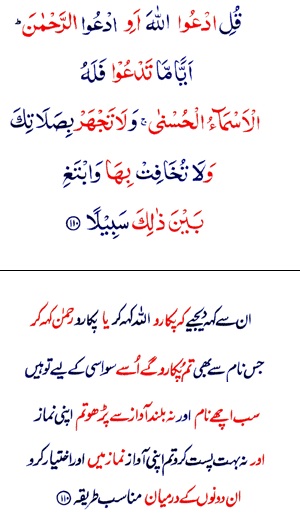 قُلِ ادْعُوا اللّٰهَ اَوِ ادْعُوا الرَّحْمٰنَ ؕ
اَيًّا مَّا تَدْعُوْا فَلَهُ
الْاَسْمَآءُ الْحُسْنٰى ۚ وَلَا تَجْهَرْ بِصَلَاتِكَ
وَلَا تُخَافِتْ بِهَا وَابْتَغِ
بَيْنَ ذٰلِكَ سَبِيْلًا ۝۱۱۰
ان سے کہہ دیجیے کہ پکارو اللہ کہہ کر یا پکارو رحمٰن کہہ کر
جس نام سے بھی تم پکارو گے اُسے سو اسی کے لیے تو ہیں
سب اچھے نام اور نہ بلند آواز سے پڑھو تم اپنی نماز
اور نہ بہت پست کرو تم اپنی آواز نماز میں اور اختیار کرو
ان دونوں کے درمیان مناسب طریقہ ۝۱۱۰